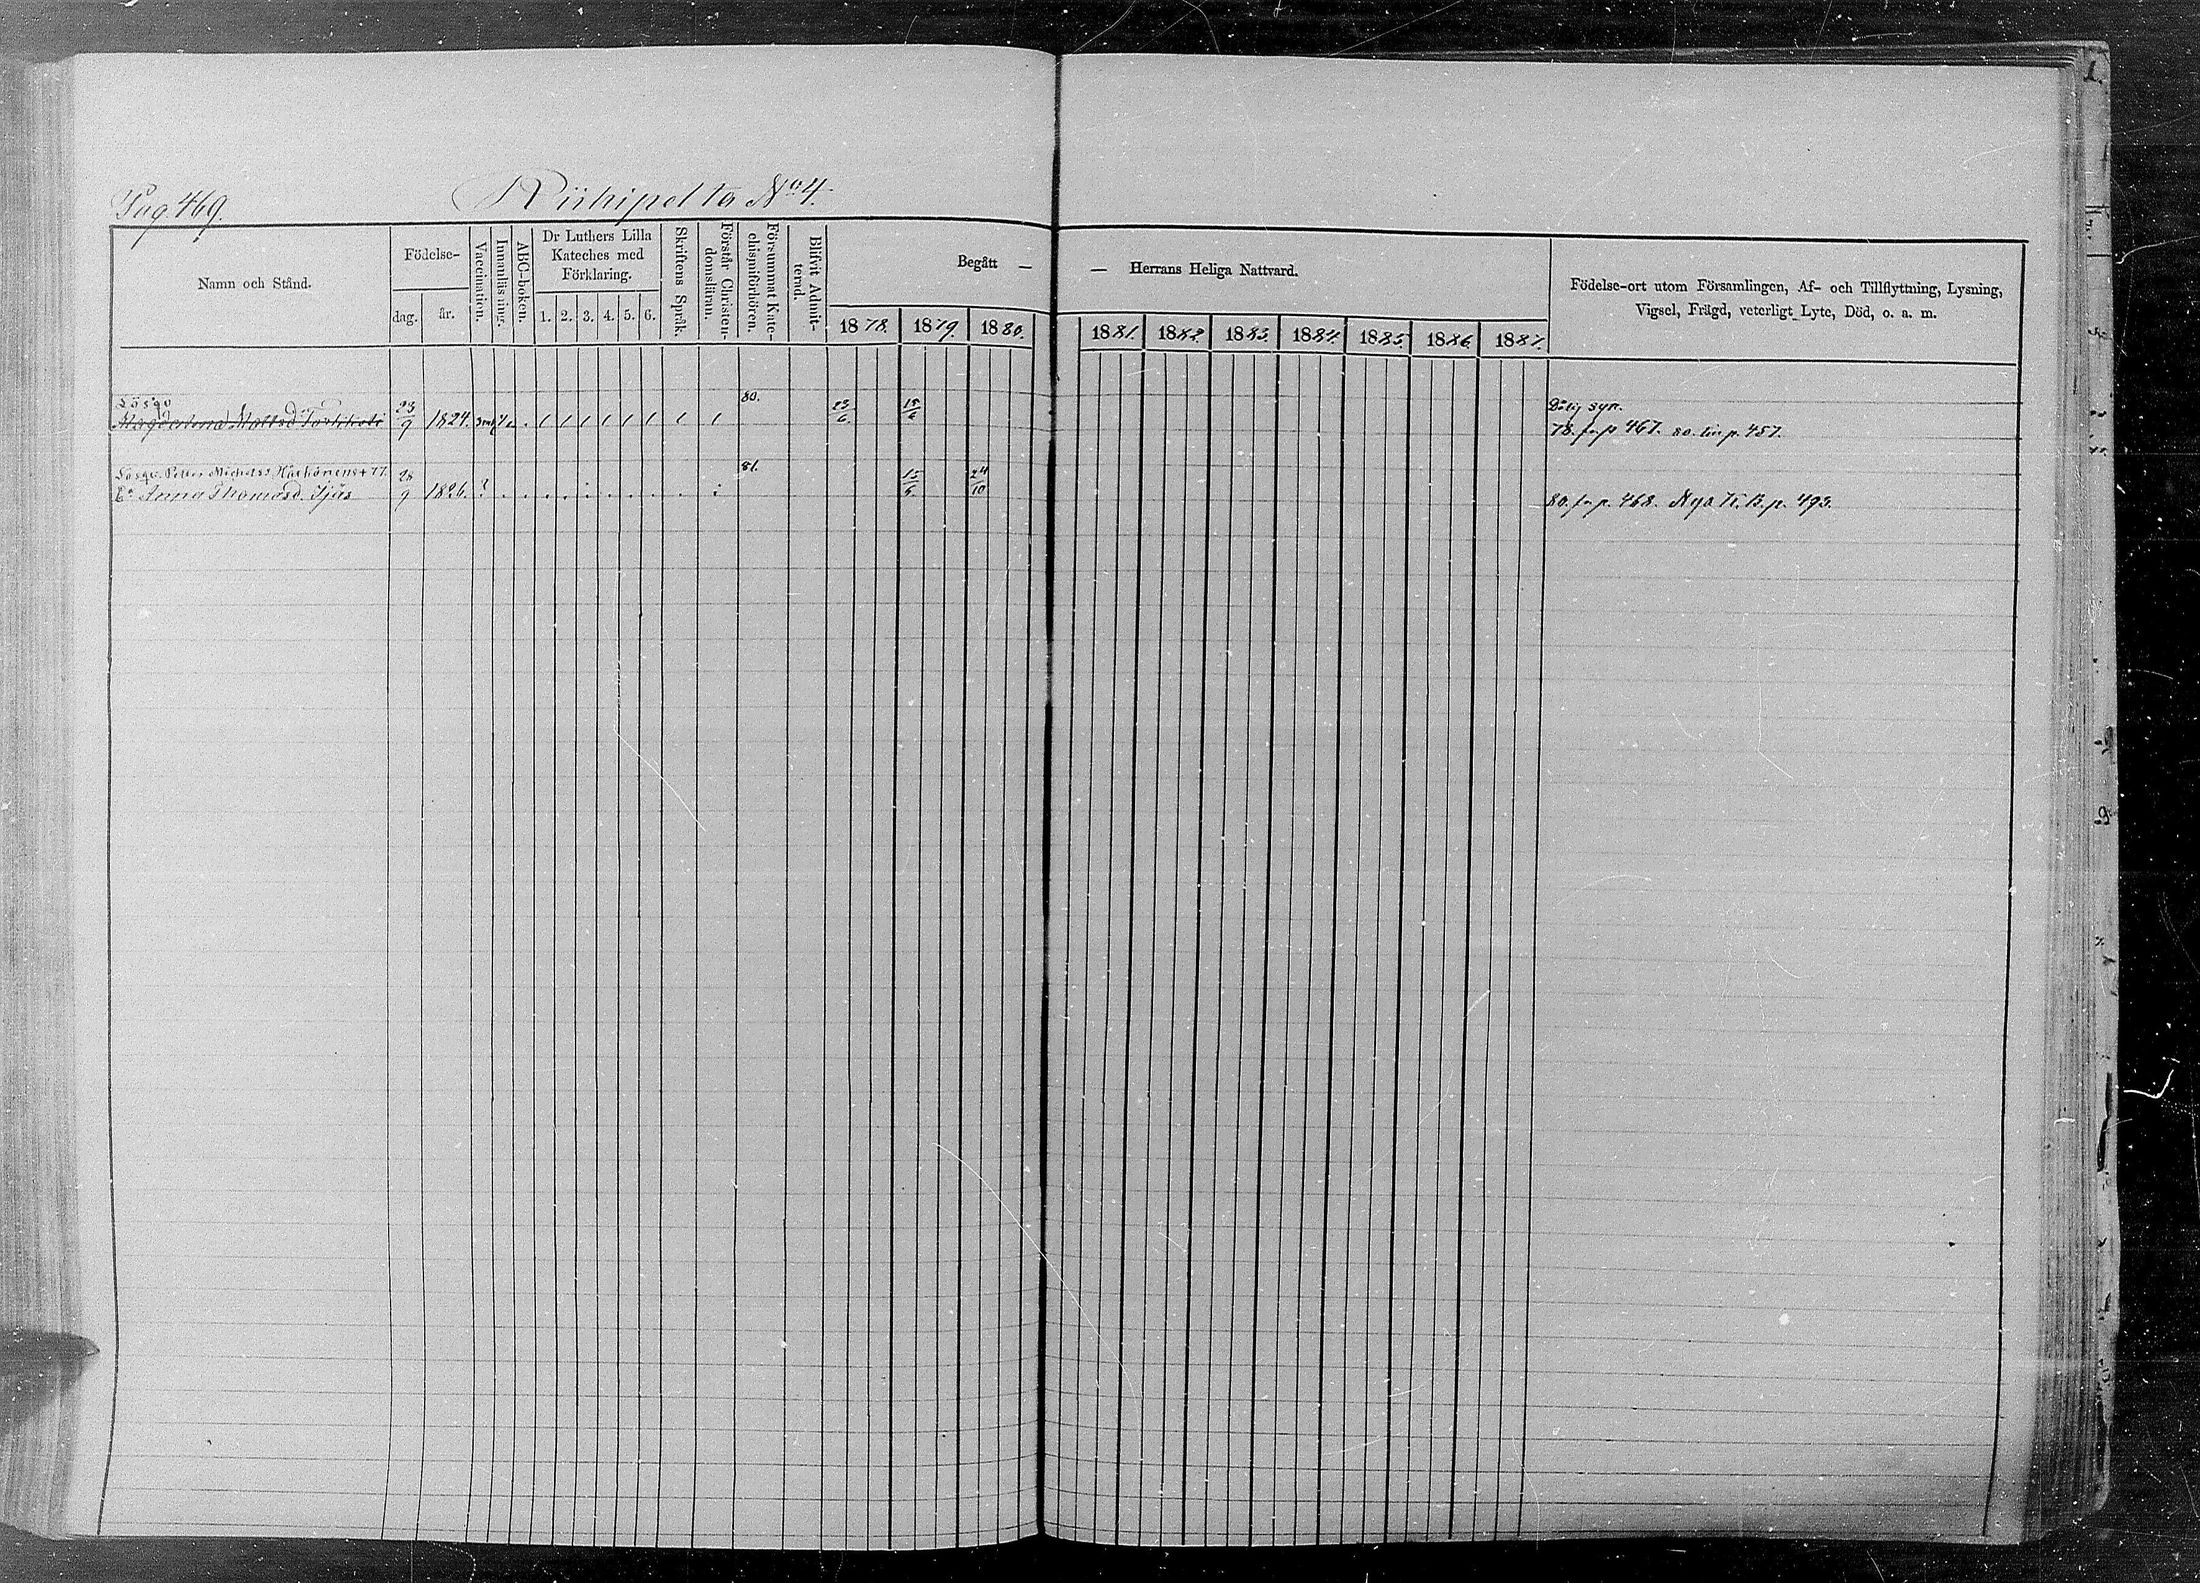 Pag. 469.
Riihipelto No 4.
Namn och Stånd.
Födelse-
dag.
år.
Vaccination.
Innanläsning.
ABC-boken.
Dr Luthers Lilla
Kateches med
Förklaring.
1. 2. 3. 4. 5. 6.
Skriftens Språk.
Förstår Christen-
domsläran.
Försummat Kate-
chismiförhören.
Blifvit Admit-
terad.
Begått —
1878. 1879. 1880.
— Herrans Heliga Nattvard.
1881. 1882. 1883. 1884. 1885. 1886. 1887.
Födelse-ort utom Församlingen, Af- och Tillflyttning, Lysning,
Vigsel, Frägd, veterligt Lyte, Död, o. a. m.
80.
Magdalena Mattsd 23/9 1824. 23/6 15/6 Dålig syn.
78. fr. p 467. 80. till p. 457.
Petter Michelss Härkönens + 77. 81.
Anna Thomasd. 28/9 1826. ? 15/6 24/10 80. fr. p. 468. Nya K. B. p. 493.